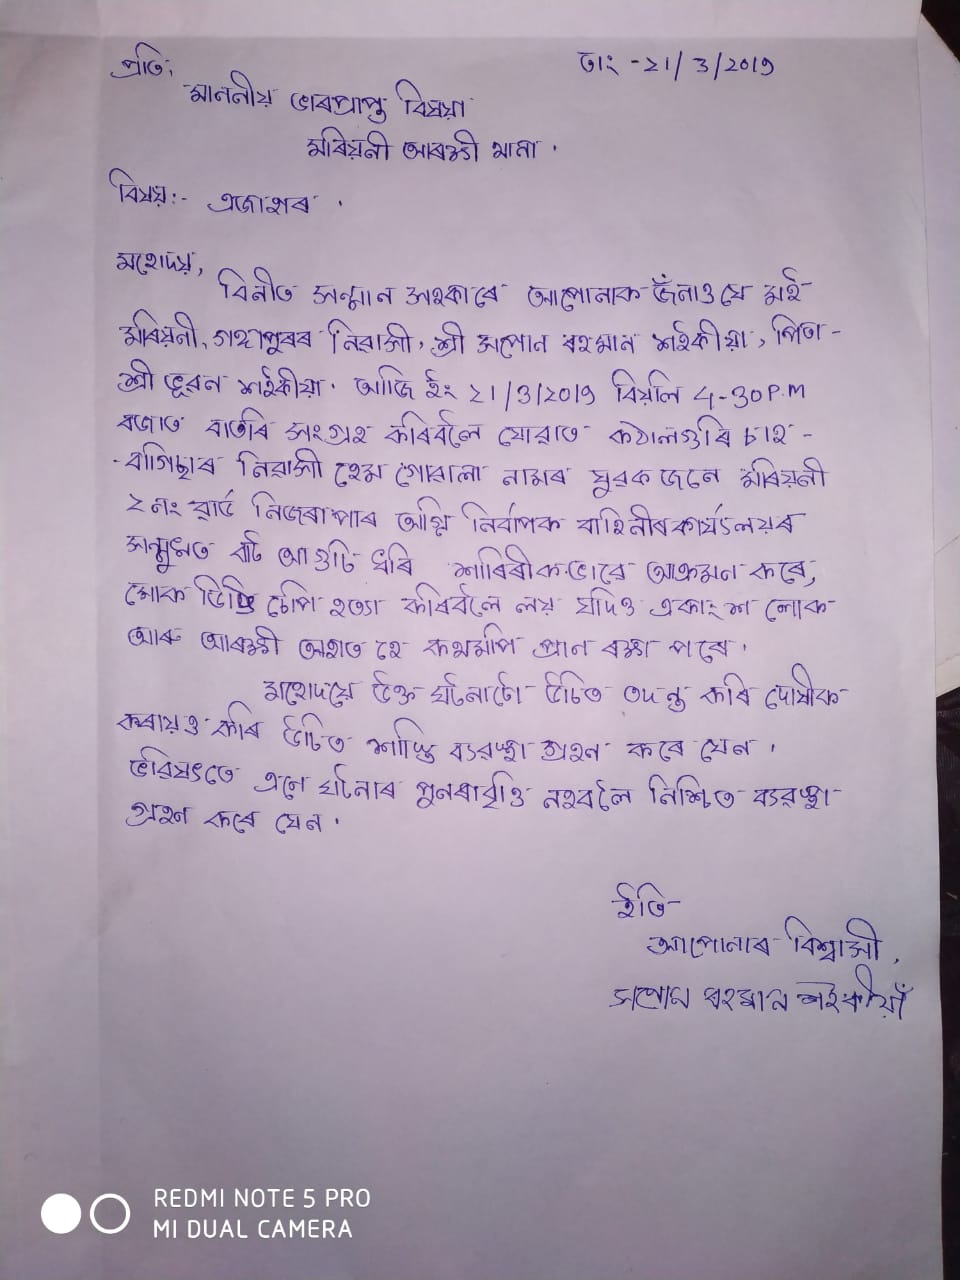 প্ৰতি,
তাং -২1/3/2019
মাননীয় ভাৰপ্ৰাপ্ত বিষয়া
মৰিয়নী আৰক্ষী থানা ·
বিষয়:- এজাহাৰ ·
মহোদয়,
বিনীত সন্মান সহকাৰে আপোনাক জঁনাও যে মই
মৰিয়নী, গঙ্গাপুৰৰ নিৱাসী, শ্ৰী সপোন ৰহমান শইকীয়া, পিতা -
শ্ৰী ভূৱন শইকীয়া · আজি ইং ২1/3/2019 বিয়লি 4-30 P.M
বজাত বাতৰি সংগ্ৰহ কৰিবলৈ যোৱাত কঠালগুৰি চাহ -
বাগিছাৰ নিৱাসী হেম গোৱালা নামৰ যুৱক জনে মৰিয়নী
২ নং ৱাৰ্ড নিজৰাপাৰ অগ্নি নিৰ্বাপক বাহিনীৰ কাৰ্যালয়ৰ
সন্মুখত বাট আগুচি ধৰি শাৰিৰীকভাৱে আক্ৰমন কৰে,
মোক ডিঙি চেপি হত্যা কৰিবলৈ লয় যদিও একাংশ লোক
আৰু আৰক্ষী অহাত হে কথমপি প্ৰান ৰক্ষা পৰে ·
মহোদয়ে উক্ত ঘটনাটো উচিত তদন্ত কৰি দোষীক
কৰায়ত্ত কৰি উচিত শাস্তি ব্যৱস্থা গ্ৰহন কৰে যেন ·
ভৱিষ্যতে এনে ঘটনাৰ পুনৰাবৃত্তি নহবলৈ নিশ্চিত ব্যৱস্থা
গ্ৰহন কৰে যেন ·
ইতি-
আপোনাৰ বিশ্বাসী,
সপোন ৰহমান শইকীয়াঁ
REDMI NOTE 5 PRO
MI DUAL CAMERA